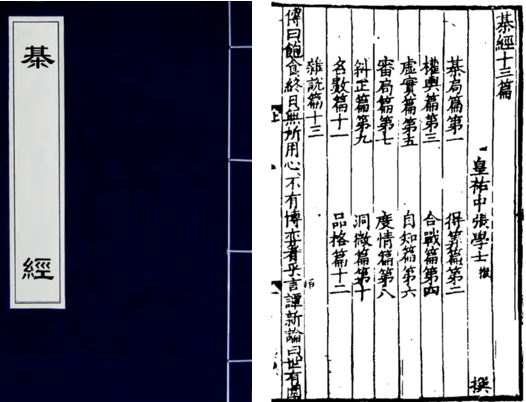 棊經
棊經十三篇
皇祐中張學士 撰
棊局篇第一 得筭篇第二
權輿篇第三 合戰篇第四
虛實篇第五 自知篇第六
審局篇第七 度情篇第八
斜正篇第九 洞微篇第十
名數篇十一 品格篇十二
雜說篇十三
傳曰飽食終日無所用心不有博弈者乎言譚新論曰世有圍